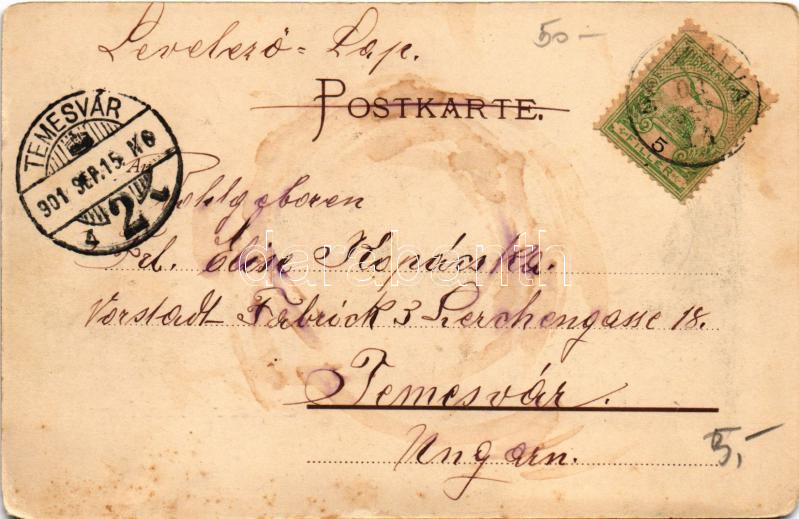 Levelező-Lap.
50-
POSTKARTE.
TEMESVÁR
901 SEP. 15. N6
2
4
5
FILLER
An
Wohlgeboren
Frl. Elise Kopácska.
darabanth
Vorstadt Fabrick 3 Lerchengasse 18.
Temesvár.
Ungarn.
5,-